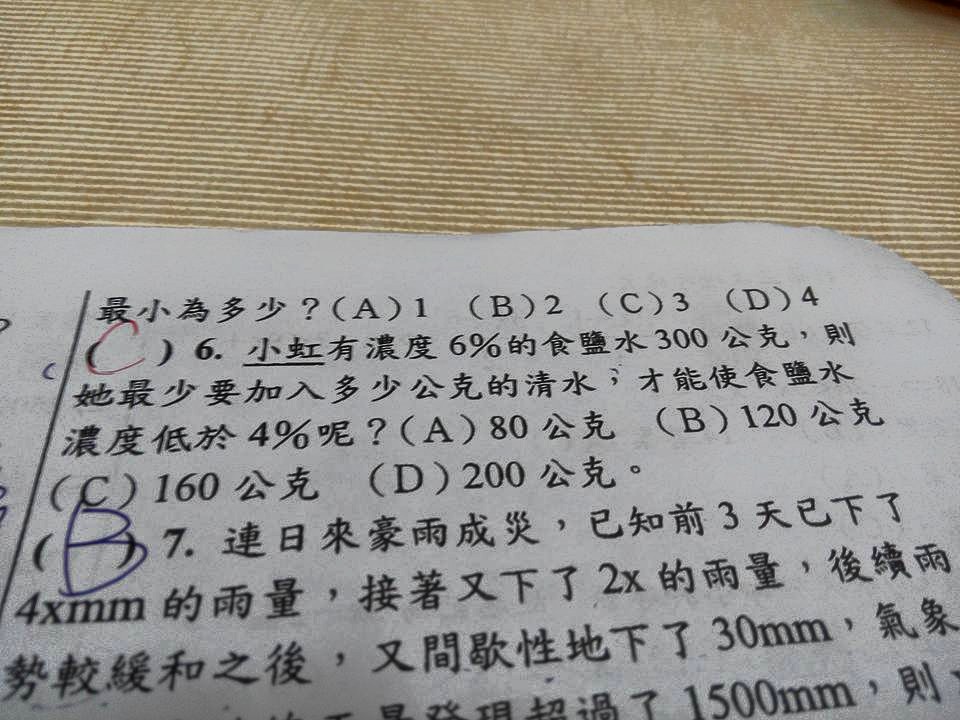 最小為多少？(A)1 (B)2 (C)3 (D)4
(C) 6. 小虹有濃度6%的食鹽水300公克，則
她最少要加入多少公克的清水，才能使食鹽水
濃度低於4%呢？(A)80公克 (B)120公克
(C)160公克 (D)200公克。
(B) 7. 連日來豪雨成災，已知前3天已下了
4xmm的雨量，接著又下了2x的雨量，後續雨
勢較緩和之後，又間歇性地下了30mm，氣象
發現超過了1500mm，則